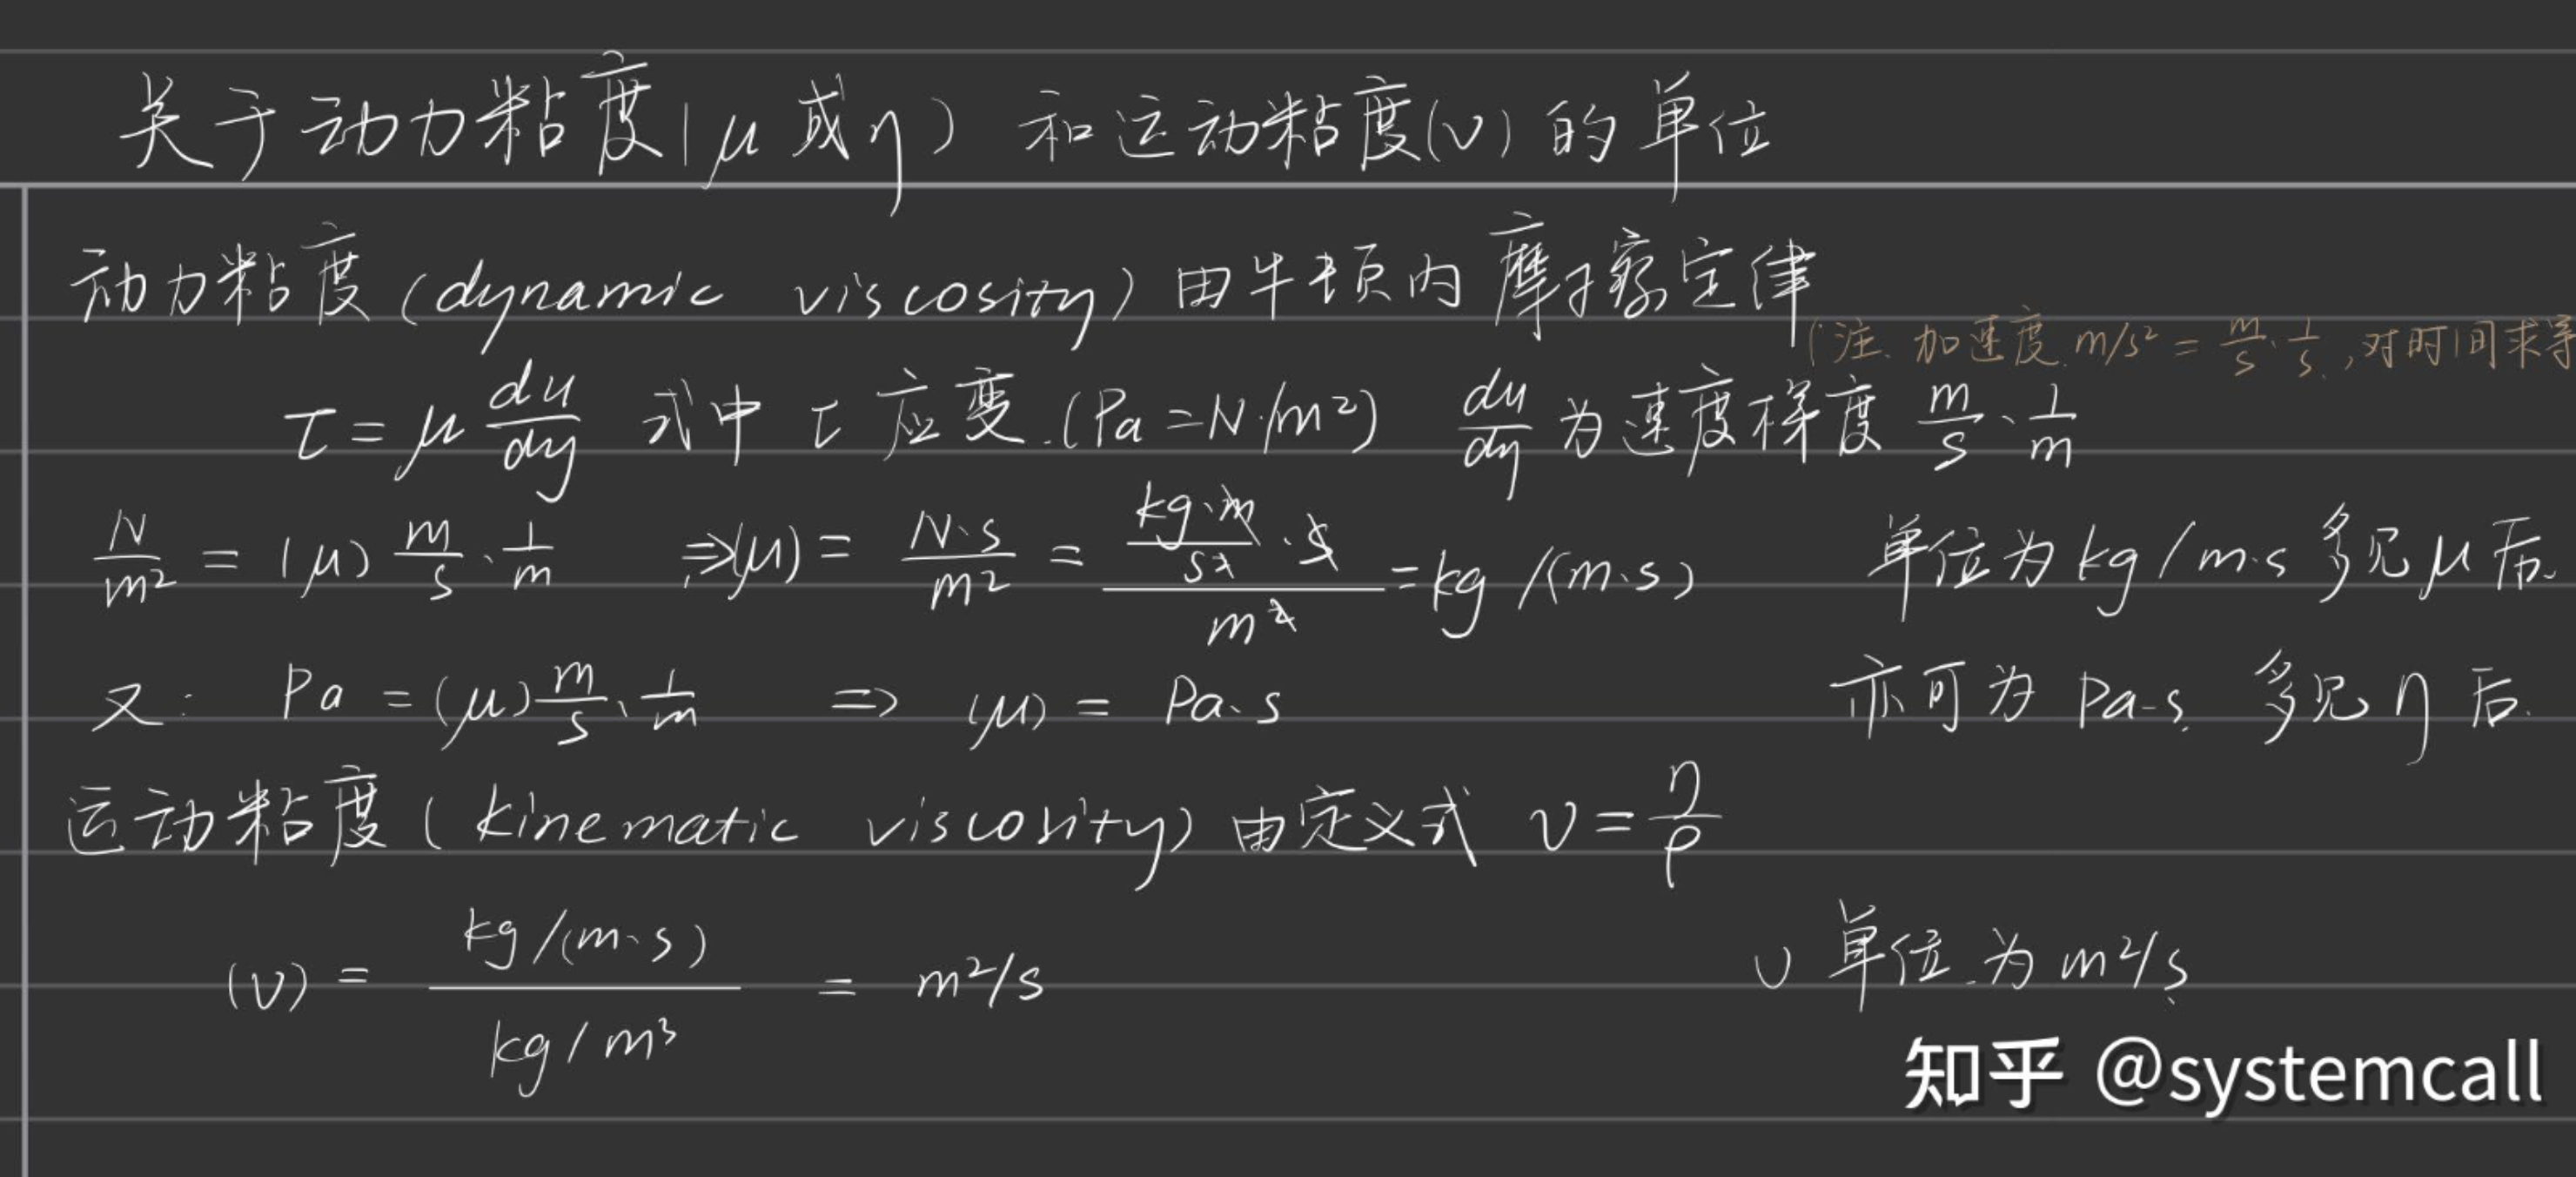 关于动力粘度(μ或η) 和运动粘度(ν)的单位
动力粘度(dynamic viscosity)由牛顿内摩擦定律
(注.加速度.m/s² = m/s·1/s.,对时间求导
τ=μ du/dy 式中 τ 应变.(Pa=N/m²) du/dy 为速度梯度 m/s·1/m
N/m² = (μ) m/s·1/m ⇒(μ)= N·s/m² = (kg·m/s²·s)/m² =kg/(m·s) 单位为kg/m·s 多见μ后.
又: Pa =(μ)m/s·1/m ⇒ (μ) = Pa·s 亦可为 Pa-s. 多见η后.
运动粘度(kinematic viscosity)由定义式 ν=η/ρ
(ν) = kg/(m·s) / kg/m³ = m²/s υ单位.为m²/s
知乎 @systemcall